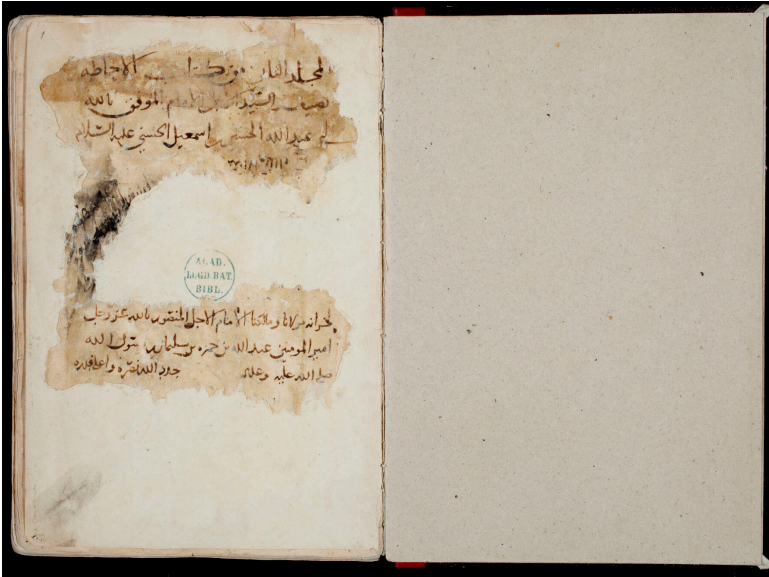 المجلد الثاني من كتاب الاحاطه
تصنيف السيد الامام الموفق بالله
ابي عبد الله الحسين بن اسمعيل الحسني عليه السلام
ACAD.
LUGD. BAT.
BIBL.
لخزانه مولانا ومالكنا الامام الاجل المنصور بالله عز وجل
امير المومنين عبد الله بن حمزه بن سليمان بن رسول الله
صلى الله عليه وعلى جدد الله نصره واعلى قدره